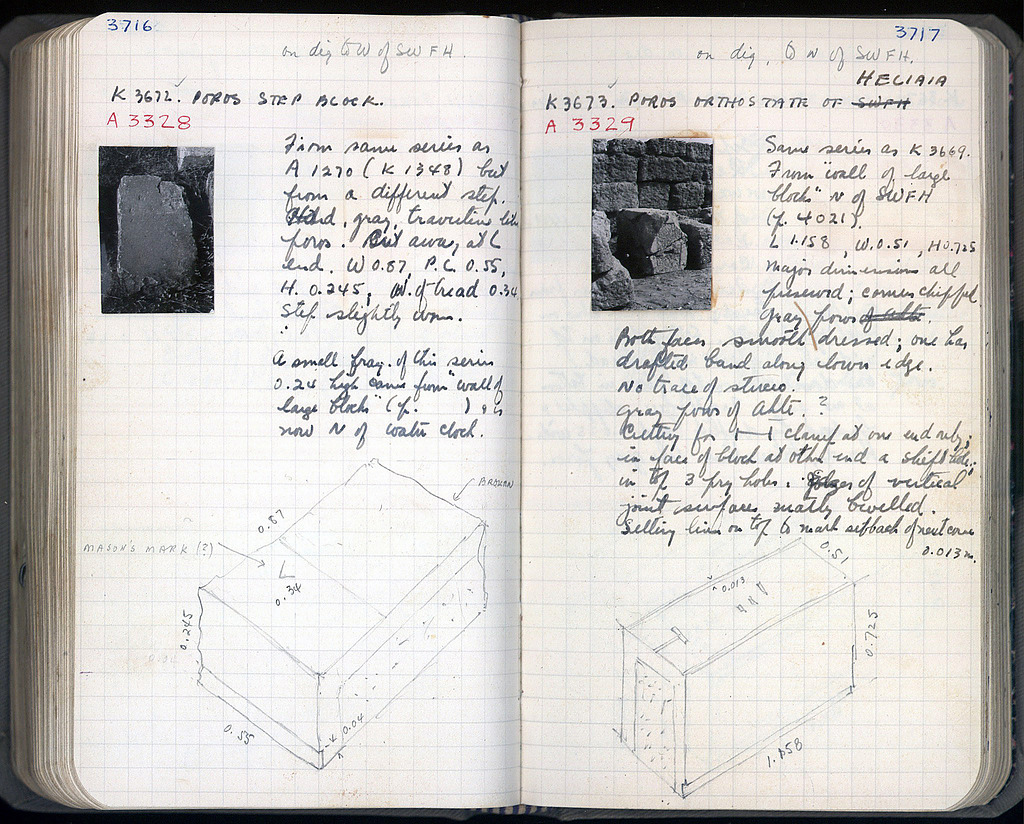 3716
on dig to W of SWFH.
K 3672. POROS STEP BLOCK.
A 3328
From same series as
A 1270 (K 1348) but
from a different step.
Hard, gray, travertine like
poros. away, at L
end. W 0.87, P.L. 0.55,
H. 0.245, W. of tread 0.34
Step slightly worn.
A small frag. of this series
0.24 high came from "wall of
large blocks" (p. ) & is
now N of water clock.
BROKEN
0.87
MASON'S MARK (?)
L
0.34
0.245
0.55
0.04
3717
on dig, to N of SWFH.
HELIAIA
K 3673. POROS ORTHOSTATE OF SWFH
A 3329
Same series as K 3669.
From "wall of large
blocks" N of SWFH
(p. 4021).
L 1.158, W. 0.51, H 0.725
Major dimensions all
preserved; corners chipped.
Gray poros of Akte.
Both faces smooth dressed; one has
drafted band along lower edge.
No trace of stucco.
Gray poros of Akte. ?
Cutting for clamp at one end only;
in face of block at other end a shift hole;
in top 3 pry holes. Edges of vertical
joint surfaces neatly bevelled.
Setting line on top to mark setback of next course
0.013 m.
0.51
0.013
0.725
1.158